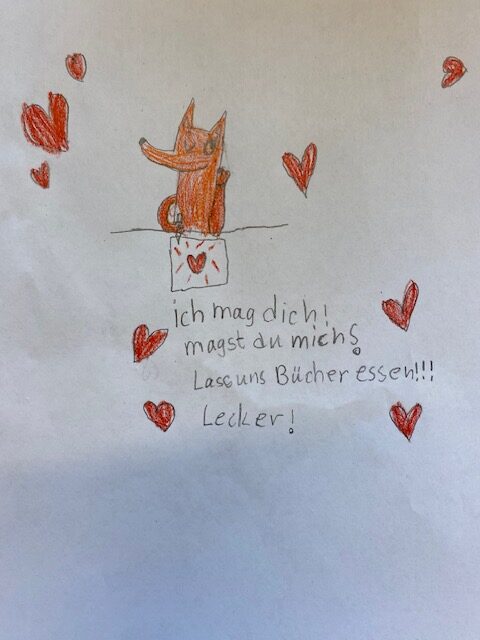 ich mag dich!
magst du mich?
Lass uns Bücher essen!!!
Lecker!